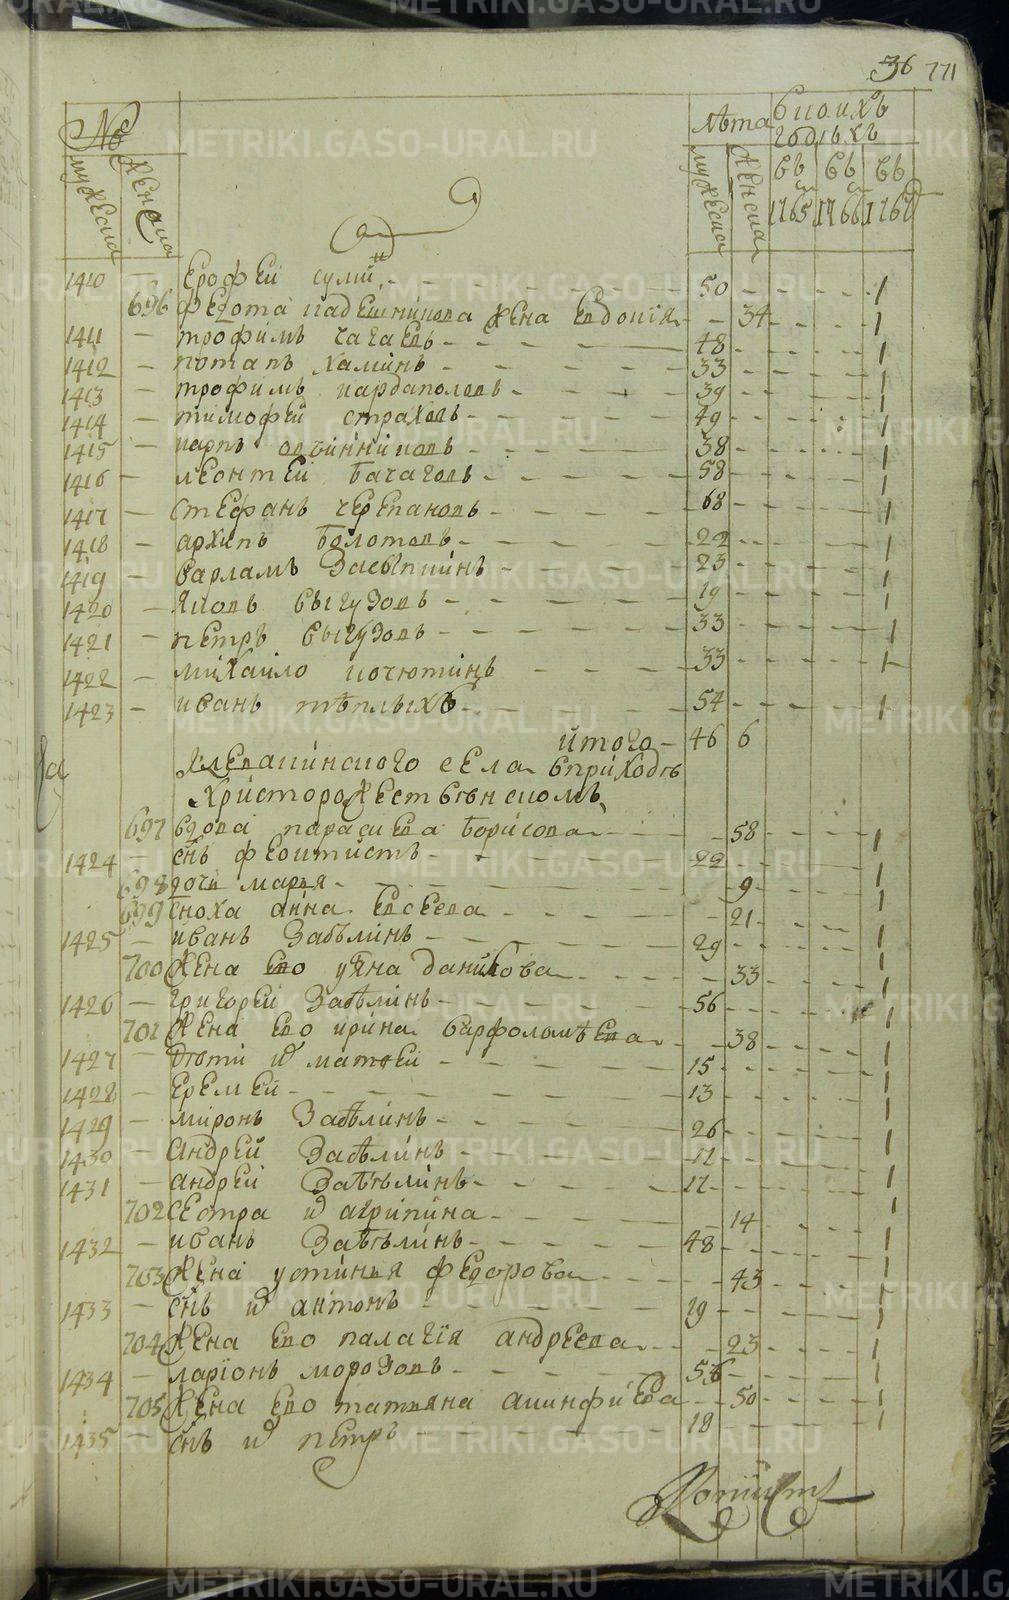 METRIKI.GASO-URAL.RU
36 771
№
мужеска женска лѣта в коихъ годѣхъ
мужеска женска въ 1765 въ 1766 въ 1767
1410 — ерофей 50 1
696 федота жена евдокия 34 1
1411 — трофимъ чагаевъ 48 1
1412 — потапъ хаминъ 33 1
1413 — трофимъ кардаполовъ 39 1
1414 — тимофей страховъ 49 1
1415 — карпъ овчинниковъ 38 1
1416 — леонтей бачаговъ 58 1
1417 — стефанъ черепановъ 68 1
1418 — архипъ болотовъ 22 1
1419 — варламъ засыпкинъ 23 1
1420 — яковъ выгузовъ 19 1
1421 — петръ выгузовъ 33 1
1422 — михаило кочютинъ 33 1
1423 — иванъ тѣплыхъ 54 1
итого 46 6
клевакинского села в приходѣ
христорожественскомъ
697 вдова параскева борисова 58 1
1424 — снъ феоктистъ 22 1
698 дочь марья 9 1
699 сноха анна евсеева 21 1
1425 — иванъ забѣлинъ 29 1
700 жена ево уяна данилова 33 1
1426 — григорей забѣлинъ 56 1
701 жена ево ирина варфоломѣева 38 1
1427 — дѣти и матвей 15 1
1428 — еремей 13 1
1429 — миронъ забѣлинъ 26 1
1430 — андрей забѣлинъ 1
1431 — андрей забѣлинъ 1
702 сестра и агрипина 14 1
1432 — иванъ забѣлинъ 48 1
703 жена устинья федорова 43 1
1433 — снъ и антонъ 19 1
704 жена ево палагия андреева 23 1
1434 — ларионъ морозовъ 1
705 жена ево татьяна акинфиева 50 1
1435 — снъ и петръ 18 1